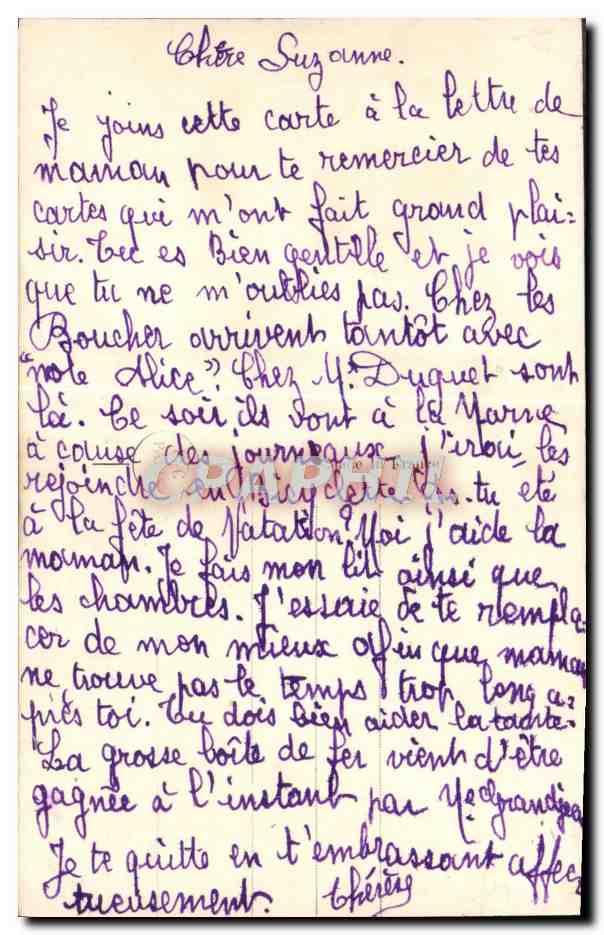 Chère Suzanne.
Je joins cette carte à la lettre de
maman pour te remercier de tes
cartes qui m'ont fait grand plai-
sir. Tu es Bien gentille et je vois
que tu ne m'oublies pas. Chez les
Boucher arrivent tantôt avec
"note Alice". Chez Mr Duguet sont
là. Ce soir ils vont à la Marne
à cause des journeaux j'irai les
rejoindre en Bicyclette. tu été
à la fête de Natation? Moi j'aide la
maman. Je fais mon lit ainsi que
les chambres. J'essaie de te rempla-
cer de mon mieux afin que maman
ne trouve pas le temps trop long a-
près toi. Tu dois bien aider la tante.
La grosse boîte de fer vient d'être
gagnée à l'instant par Me Grandjean
Je te quitte en t'embrassant affec-
tueusement. Thérèse